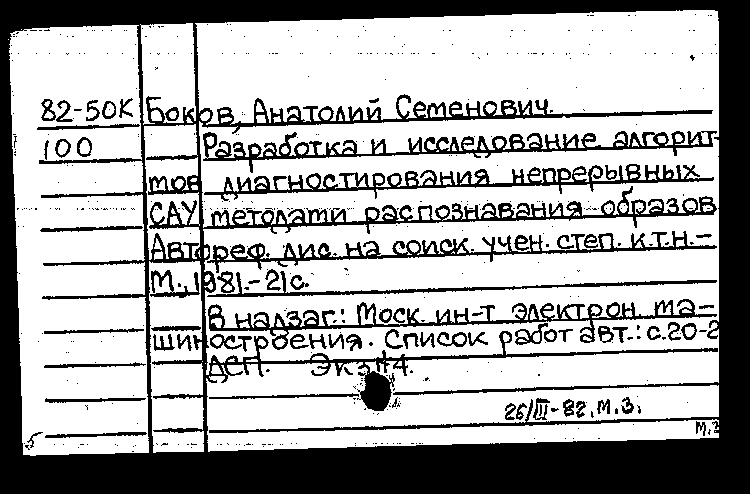 82-50К Боков, Анатолий Семенович.
100 Разработка и исследование алгорит-
мов диагностирования непрерывных
САУ методами распознавания образов
Автореф. дис. на соиск. учен. степ. к.т.н.-
М., 1981.-21с.
В надзаг.: Моск. ин-т электрон. ма-
шиностроения. Список работ авт.: с.20-2
ДЕП. Экз.№4.
26/III-82. М.З.
М.З
5